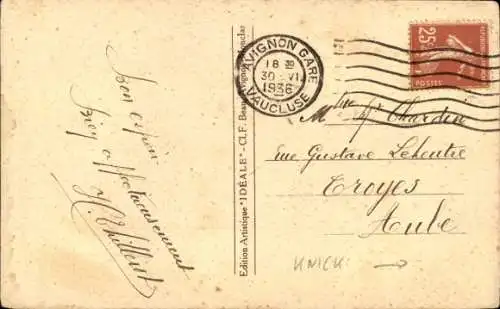 Bon espoir
Bien affectueusement
Edition Artistique "IDÉALE" - CLF.
AVIGNON GARE
18 30
30 - VI
1936
VAUCLUSE
25c
POSTES
Mr Chardin
rue Gustave Lebeutre
Troyes
Aube
KNICK →